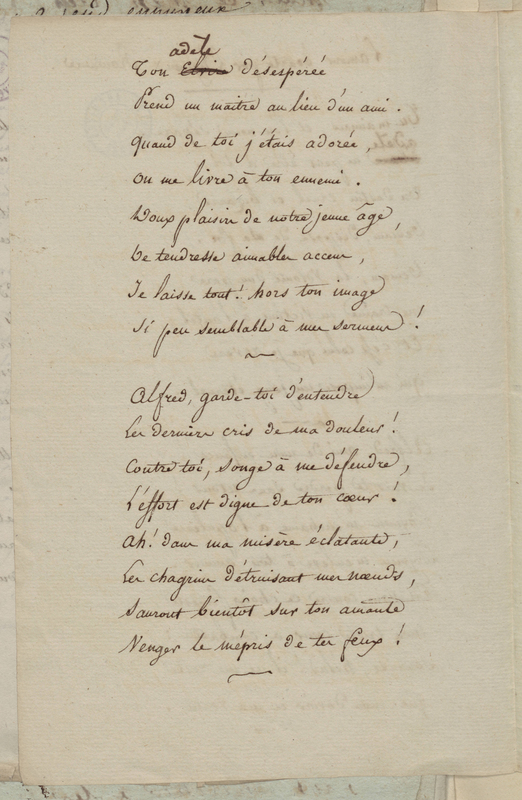 adèle
Ton Elvire désespérée
Prend un maitre au lieu d'un ami.
quand de toi j'étais adorée,
on me livre à ton ennemi.
Doux plaisirs de notre jeune âge,
De tendresse aimables accens,
Je laisse tout! hors ton image
Si peu semblable à mes sermens!
Alfred, garde-toi d'entendre
Les derniers cris de ma douleur!
Contre toi, songe à me défendre,
L'éffort est digne de ton cœur!
Ah! dans ma misère éclatante,
Les chagrins détruisant mes nœuds,
Sauront bientôt sur ton amante
Venger le mépris de tes feux!